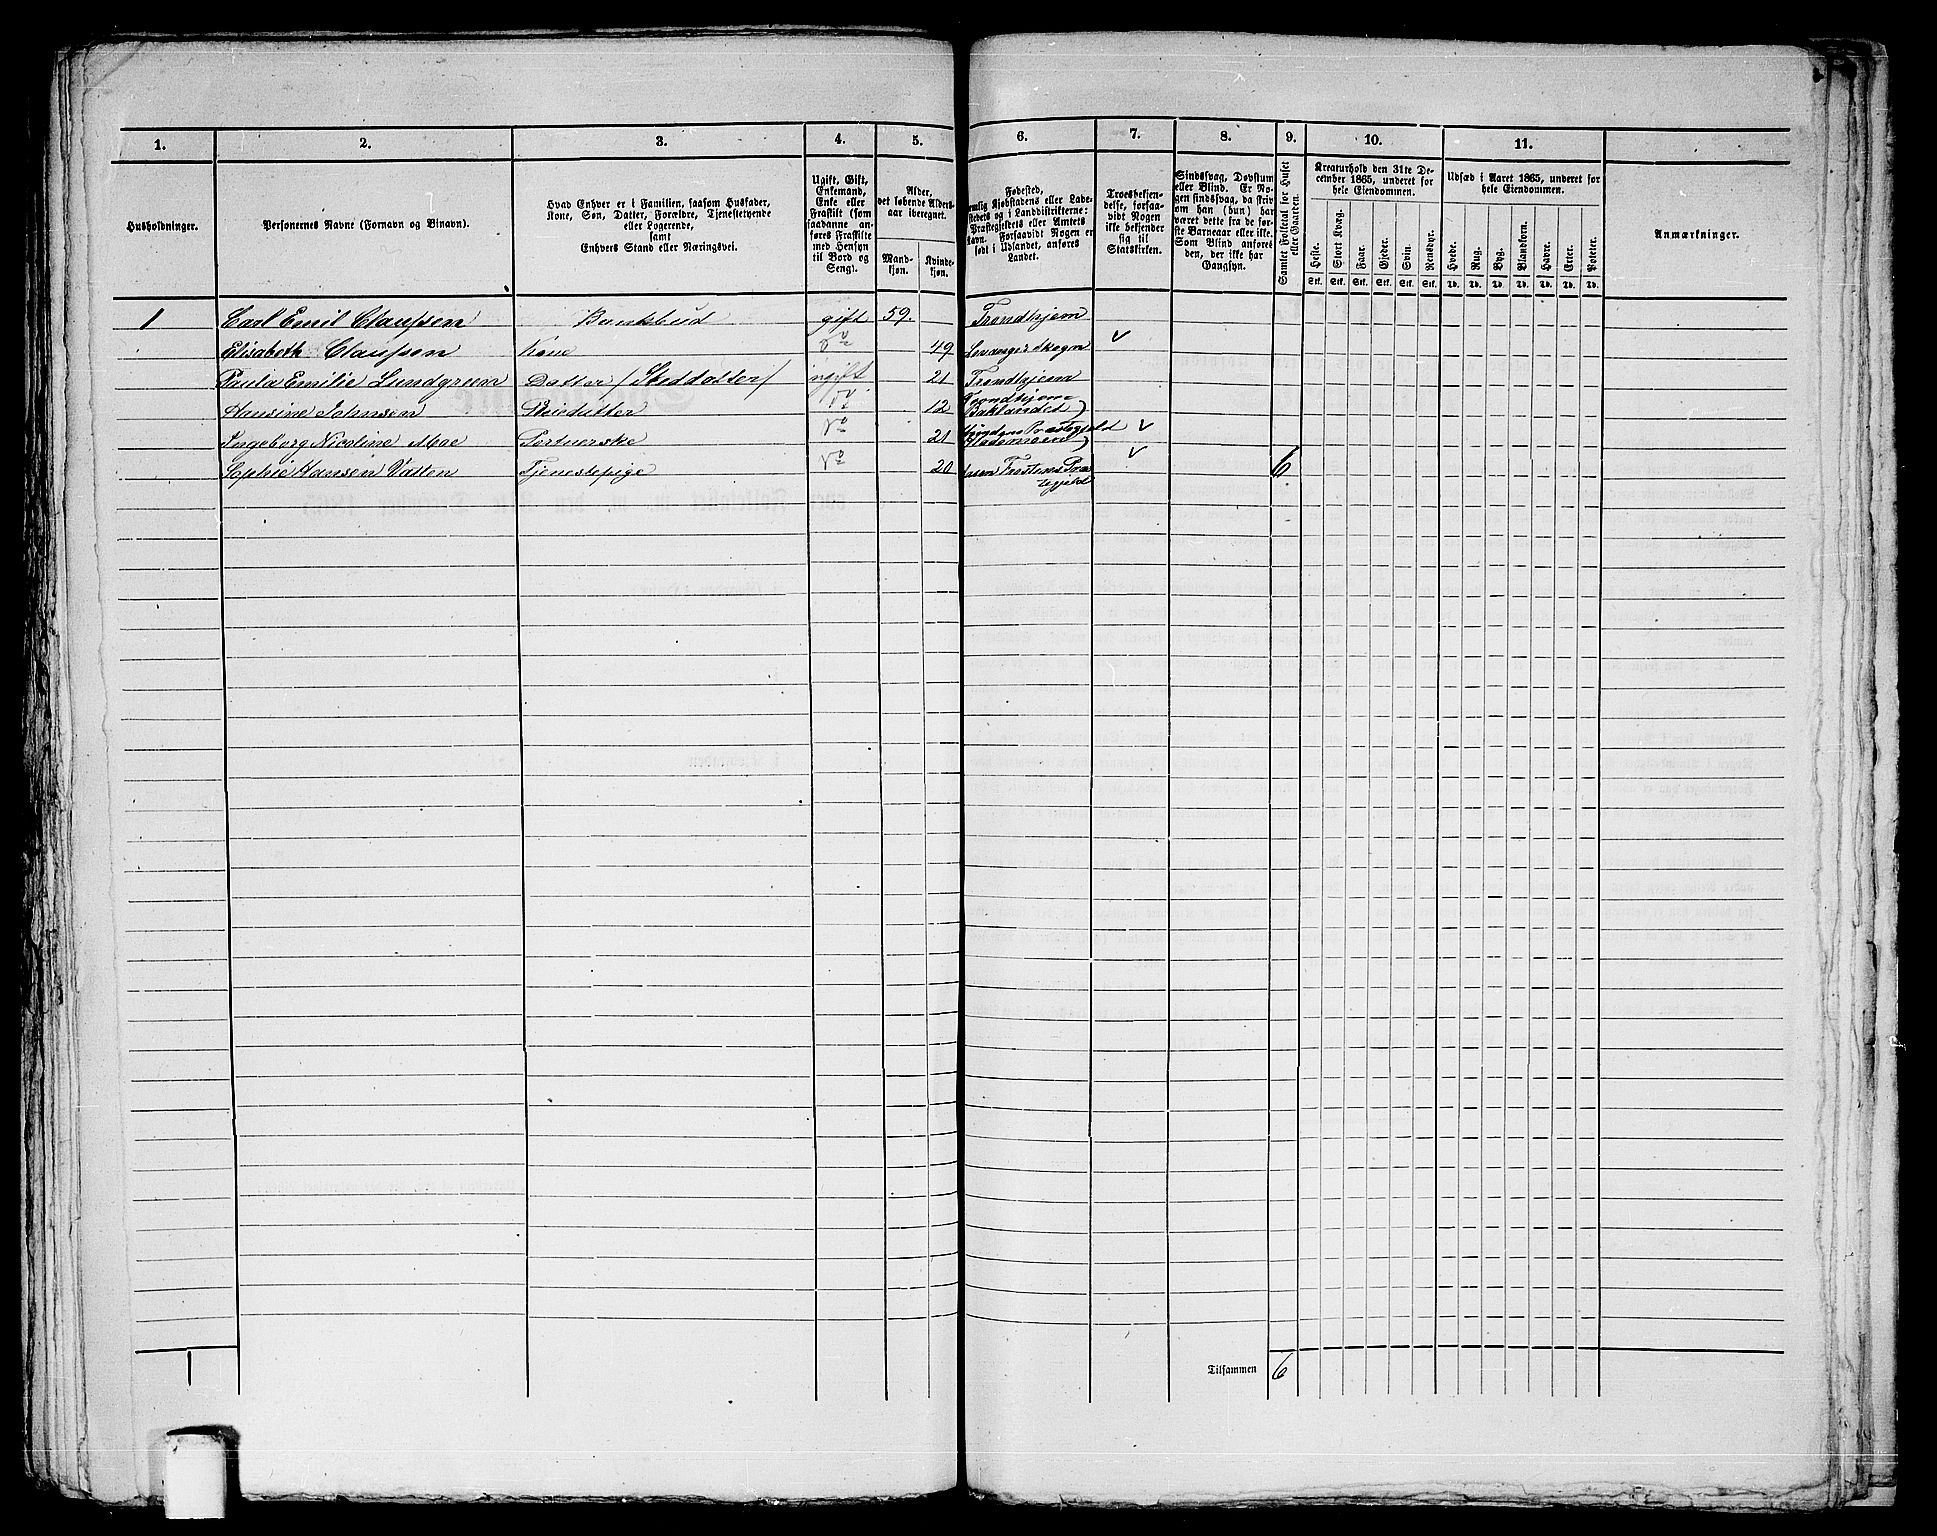 1. 2. 3. 4. 5. 6. 7. 8. 9. 10. 11.
Husholdninger.
Personernes Navne (Fornavn og Binavn).
Hvad Enhver er i Familien, saasom Husfader,
Kone, Søn, Datter, Forældre, Tjenestetyende
eller Logerende,
samt
Enhvers Stand eller Næringsvei.
Ugift, Gift,
Enkemand,
Enke eller
Fraskilt (som
saadanne an-
føres Fraskilte
med Hensyn
til Bord og
Seng).
Alder,
det løbende Alders-
aar iberegnet.
Mand-
kjøn.
Kvinde-
kjøn.
Fødested,
Kjøbstadens eller Lade-
stedets og i Landdistrikterne:
Præstegjeldets eller Amtets
Navn. Forsaavidt Nogen er
født i Udlandet, anføres
Landet.
Troesbekjen-
delse, forsaa-
vidt Nogen
ikke bekjender
sig til
Statskirken.
Sindssvag, Døvstum
eller Blind. Er No-
gen sindssvag, da skriv
om han (hun) har
været dette fra de før-
ste Barneaar eller ikke.
Som Blind anføres
den, der ikke har
Gangsyn.
Samlet Folketal for Huset
eller Gaarden.
Kreaturhold den 31te De-
cember 1865, underet for
hele Eiendommen.
Heste. Stort Kvæg. Faar. Gjeder. Svin. Rensdyr.
Stk. Stk. Stk. Stk. Stk. Stk.
Udsæd i Aaret 1865, underet for
hele Eiendommen.
Hvede. Rug. Byg. Blandkorn. Havre. Erter. Poteter.
Td. Td. Td. Td. Td. Td. Td.
Anmærkninger.
1 Carl Emil Claussen Bankbud gift 59. Trondhjem
Elisabeth Claussen Kone do 49 Levanger Skogn
Paula Emilie Lundgreen Datter /Steddatter/ ugift 21 Trondhjem
Hansine Johnsen Pleiedatter do 12 Trondhjem
Baklandet
Ingeborg Nicoline Moe do 21
Sophie Hansen Vatten Tjenestepige do 20 Frostens Præ
stegjeld 6
1 Tilsammen 6